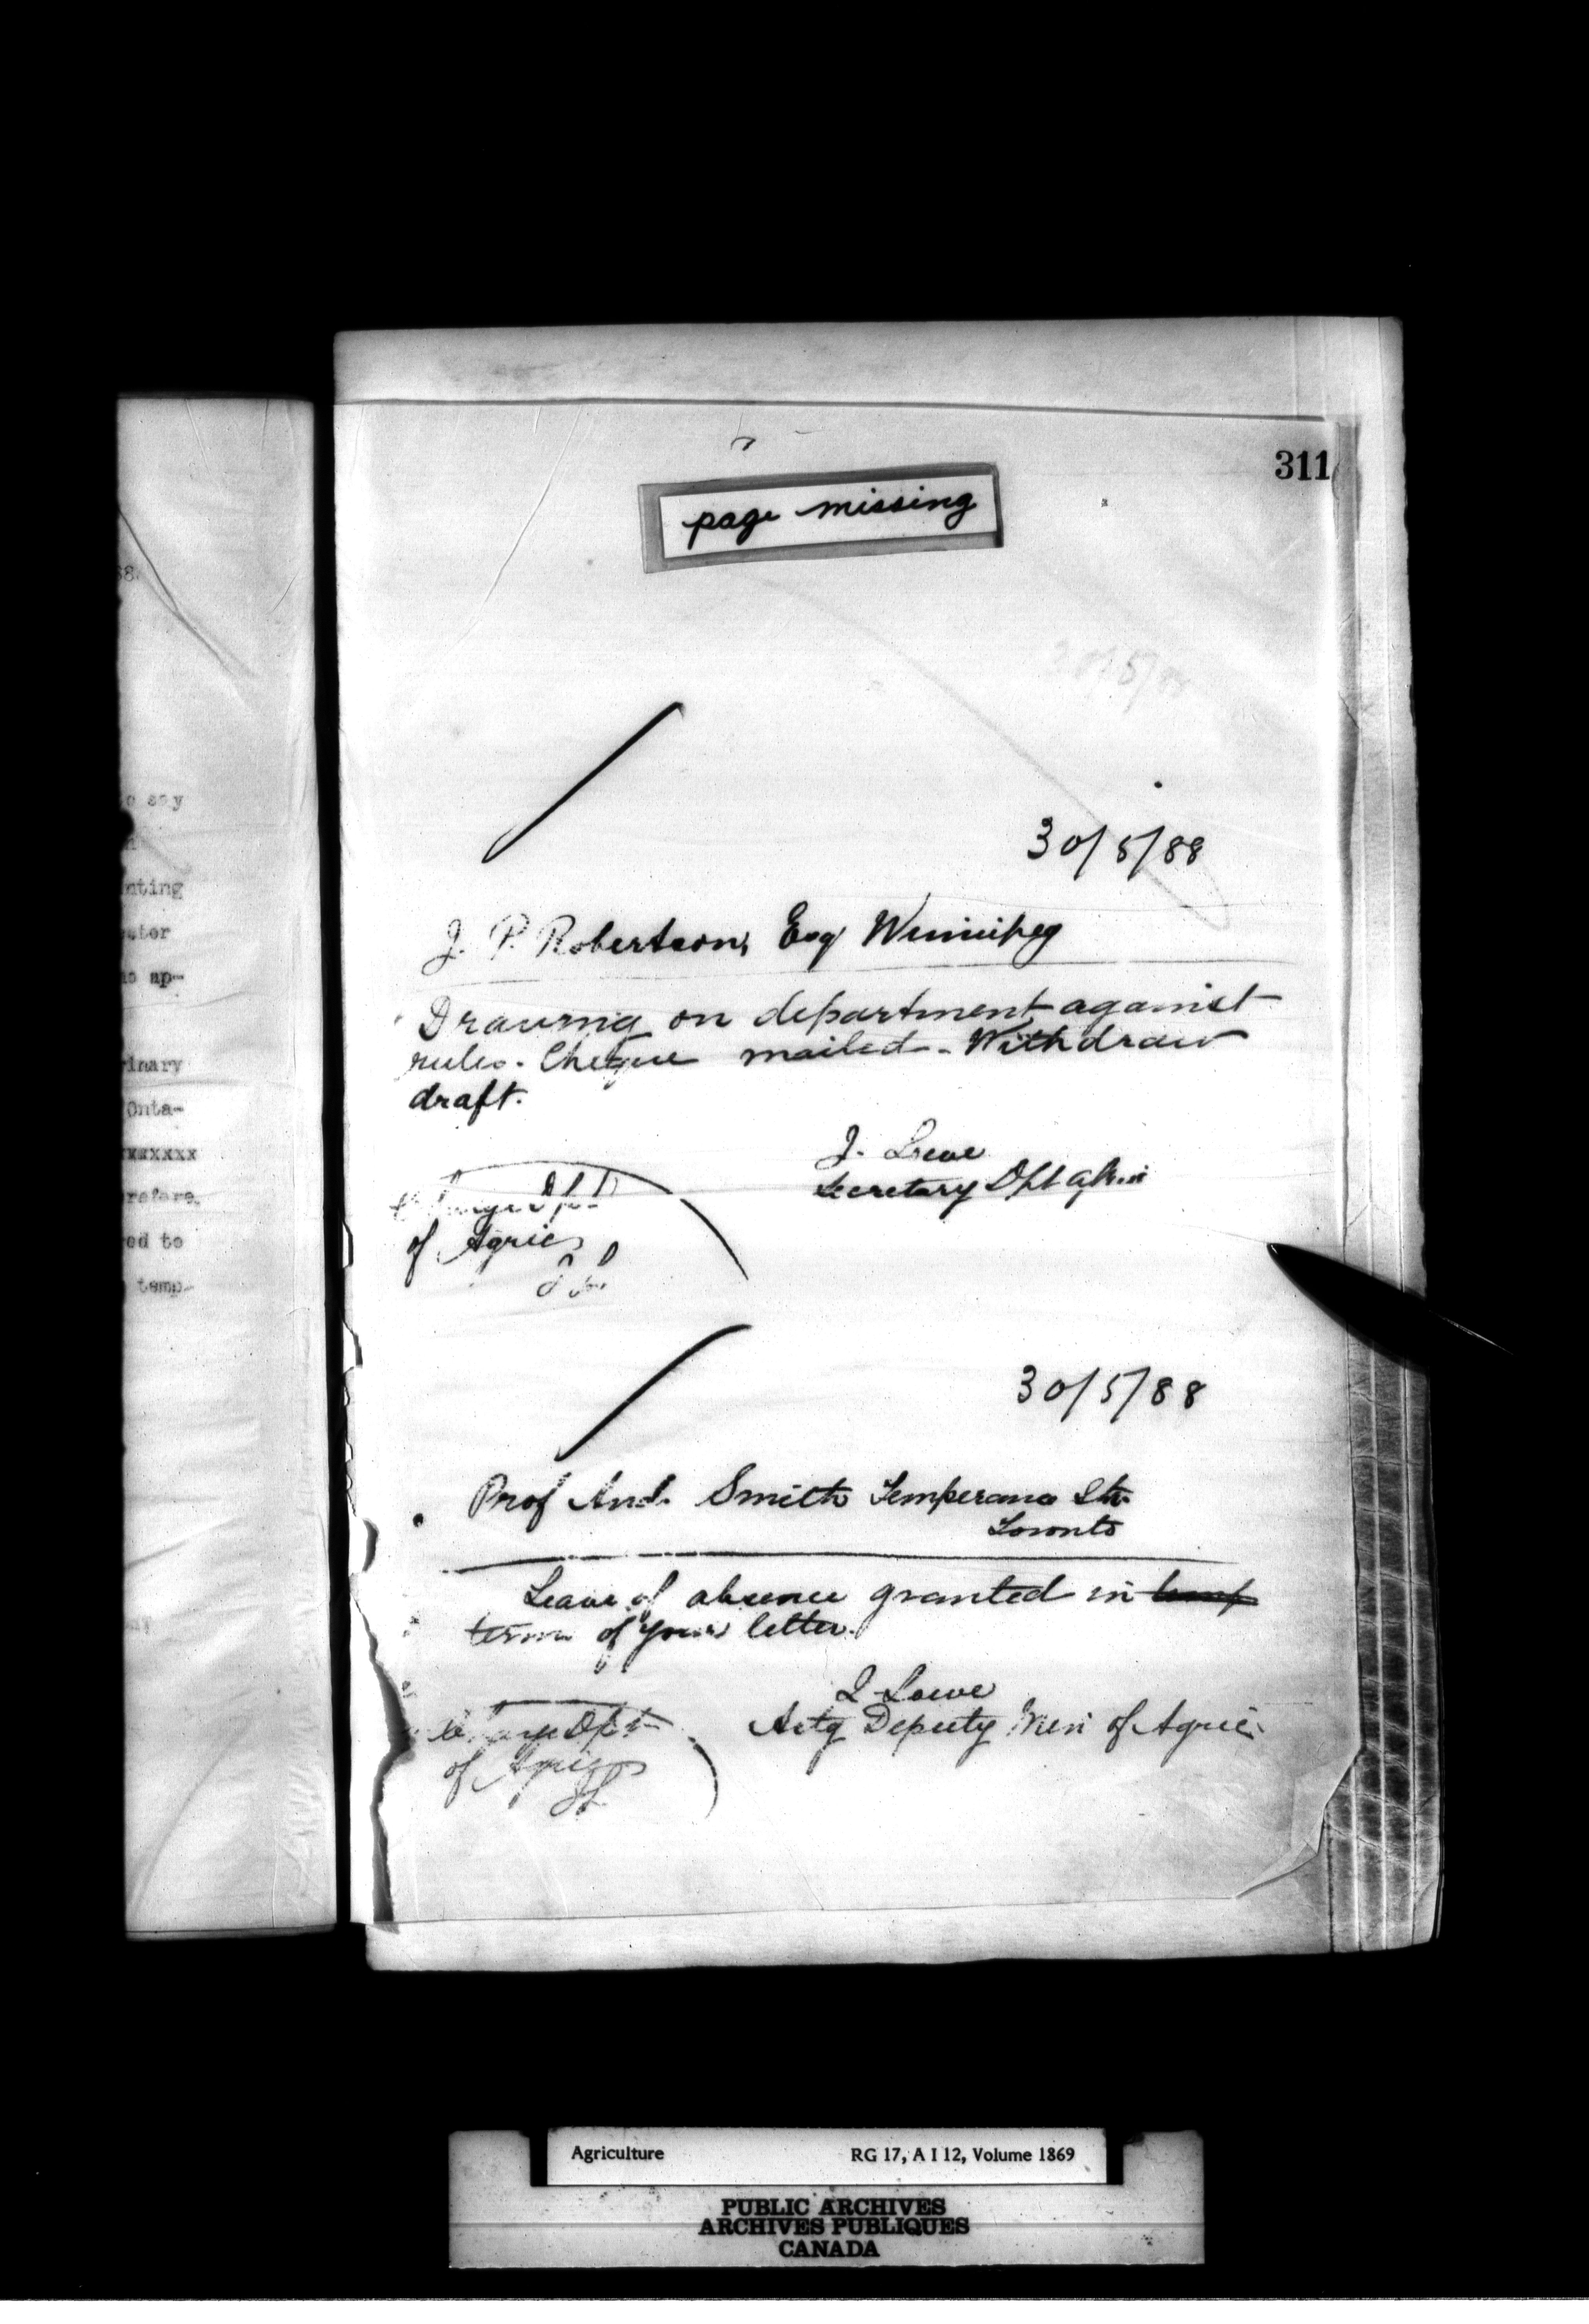 311
page missing
30/5/88
J. P. Robertson, Esq Winnipeg
Drawing on department against
rules. Cheque mailed. Withdraw
draft.
J. Lowe
Secretary Dpt Agric
Charge Dpt
of Agric
J L
30/5/88
Prof And. Smith Temperance Str
Toronto
Leave of absence granted in temp
terms of your letter.
J. Lowe
Actg Deputy Min of Agric.
Charge Dpt
of Agric
JL
o say
nting
ap-
inary
Onta-
xxxxx
refore
ed to
temp-
Agriculture RG 17, A I 12, Volume 1869
PUBLIC ARCHIVES
ARCHIVES PUBLIQUES
CANADA